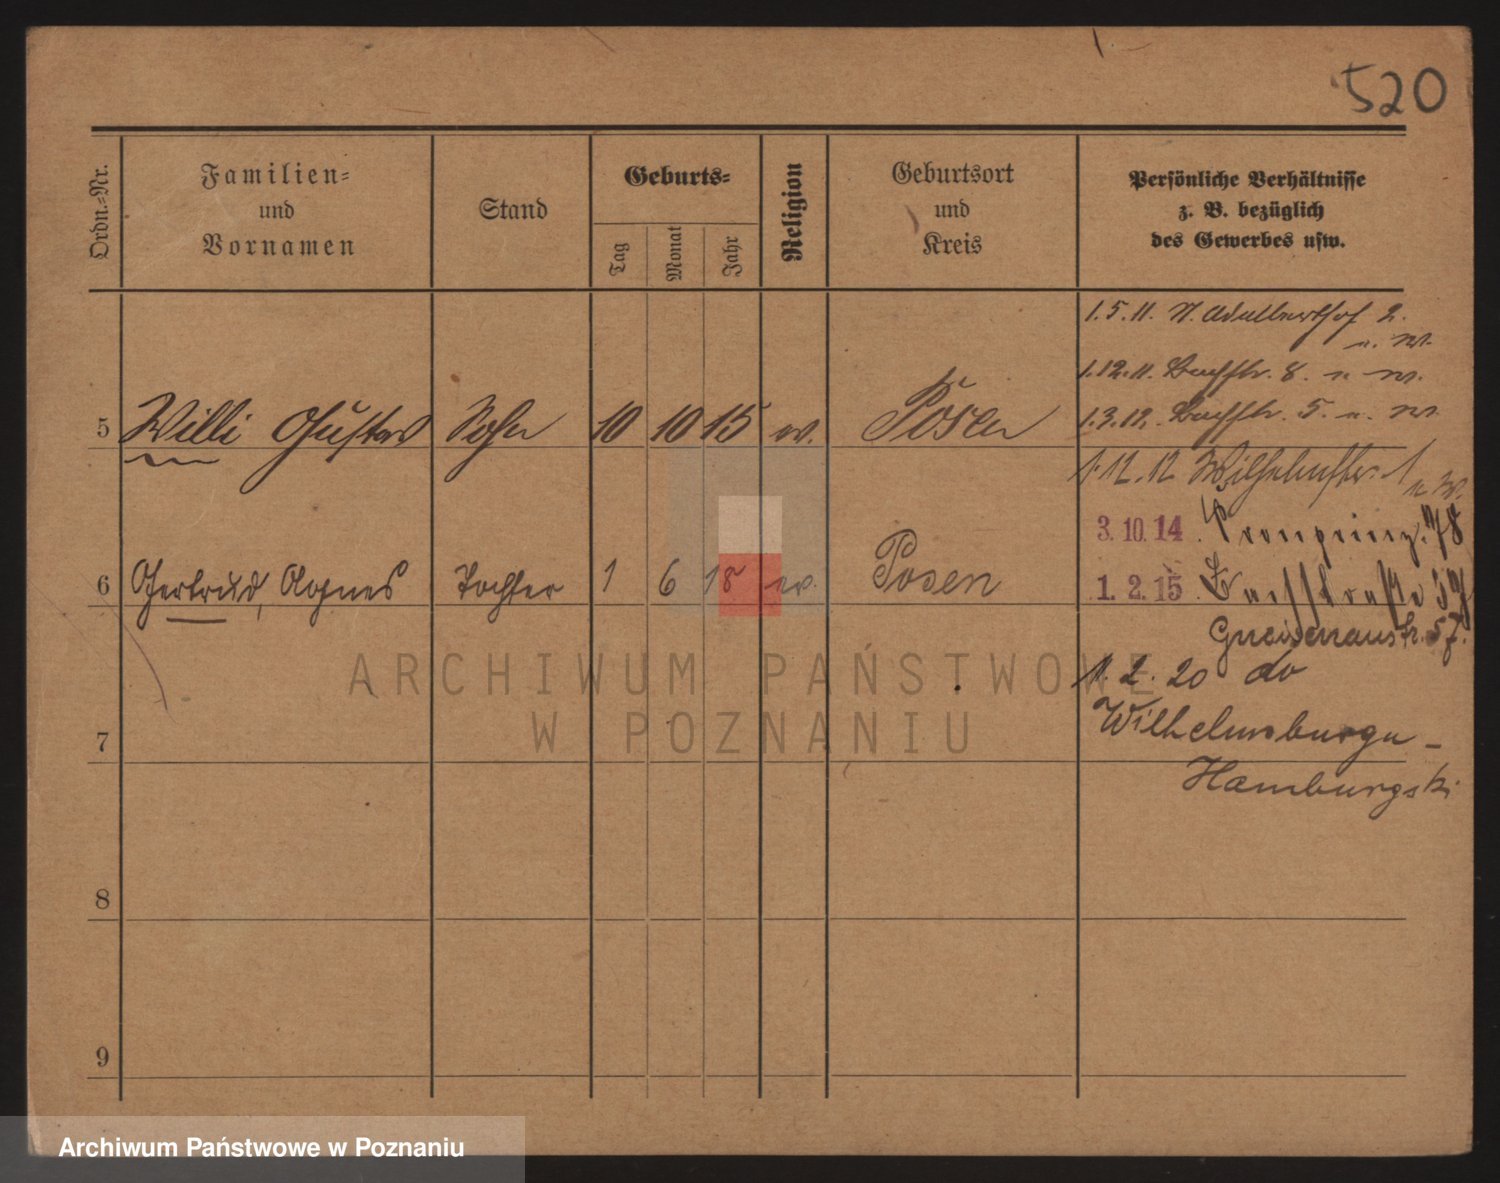 520
Ordn.-Nr.
Familien-
und
Vornamen
Stand
Geburts-
Tag
Monat
Jahr
Religion
Geburtsort
und
Kreis
Persönliche Verhältnisse
z. B. bezüglich
des Gewerbes usw.
1.5.11. N. Adalberthof 2.
u. W.
1.12.11. Bachstr. 8. u W.
1.3.12. Bachstr. 5. u. W.
5 Willi Gustav Sohn 10 10 15 ev. Posen
1.12.12 Wilhelmstr. 1
u W.
3.10.14. Kronprinz. 78
6 Gertrud, Agnes Tochter 1 6 18 ev. Posen
1.2.15.
Gneisenaustr. 57.
1.2.20 do
Wilhelmsburgu -
Hamburgski
7
8
9
ARCHIWUM PAŃSTWOWE
W POZNANIU
Archiwum Państwowe w Poznaniu